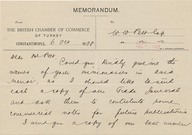 MEMORANDUM.
THE BRITISH CHAMBER OF COMMERCE
OF TURKEY
CONSTANTINOPLE, 6 Dec 1898
W. W. Peet Esq
Dear Mr Peet
Could you kindly give me the
names of your missionaries in each
as I should like to send
each a copy of our Trade Journal
and ask them to contribute some
commercial notes for future publications
I send you a copy of our last number